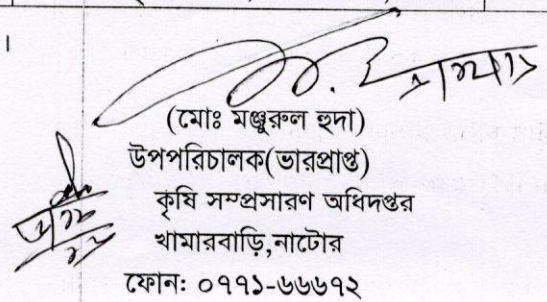 (মোঃ মঞ্জুরুল হুদা)
উপপরিচালক(ভারপ্রাপ্ত)
কৃষি সম্প্রসারণ অধিদপ্তর
খামারবাড়ি,নাটোর
ফোনঃ ০৭৭১-৬৬৬৭২